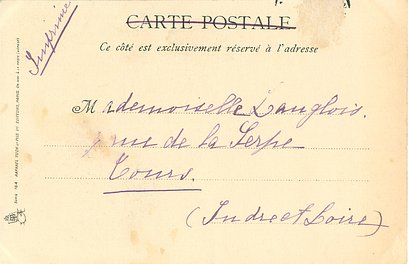 CARTE POSTALE
Ce côté est exclusivement réservé à l'adresse
Imprimé
Mademoiselle Langlois.
rue de la Serpe
Tours.
(Indre et Loire)